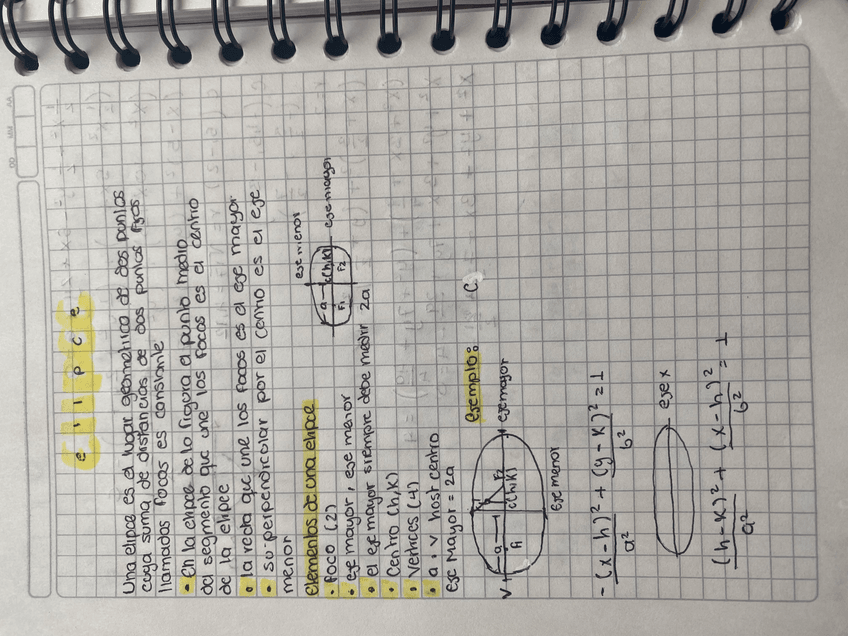 elipce
Una elipce es el lugar geometrico de dos puntos
cuya suma de distancias de dos puntos fijos
llamados focos es constante
• En la elipce de la figura el punto medio
del segmento que une los focos es el centro
de la elipce
• la recta que une los focos es el eje mayor
• su perpendicular por el centro es el eje
menor
Elementos de una elipce
• Foco (2)
• eje mayor, eje menor
• el eje mayor siempre debe medir 2a
• Centro (h,k)
• Vertices (4)
• a • v hast centro
eje Mayor = 2a
eje menor
a
c(h,k)
F1
F2
eje mayor
Ejemplo:
C
V
a
c(h,k)
F2
eje mayor
eje menor
- (x-h)² + (y-k)² = 1
a² b²
eje x
(h-k)² + (x-h)² = 1
a² b²
DD MM AA